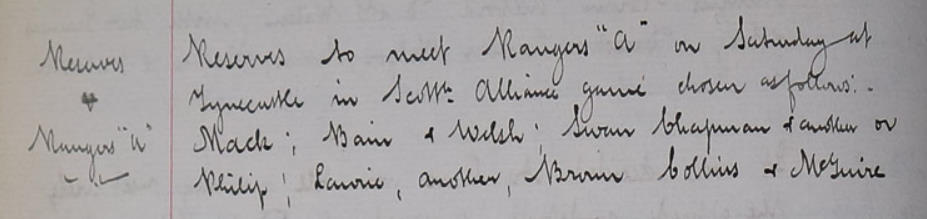 Reserves
&
Rangers "A"
Reserves to meet Rangers "A" on Saturday at
Tynecastle in Scott. Alliance game chosen as follows:-
Mack; Bain & Welsh; Swan Chapman & another or
Philip; Lawrie, another, Brown Collins & McGuire